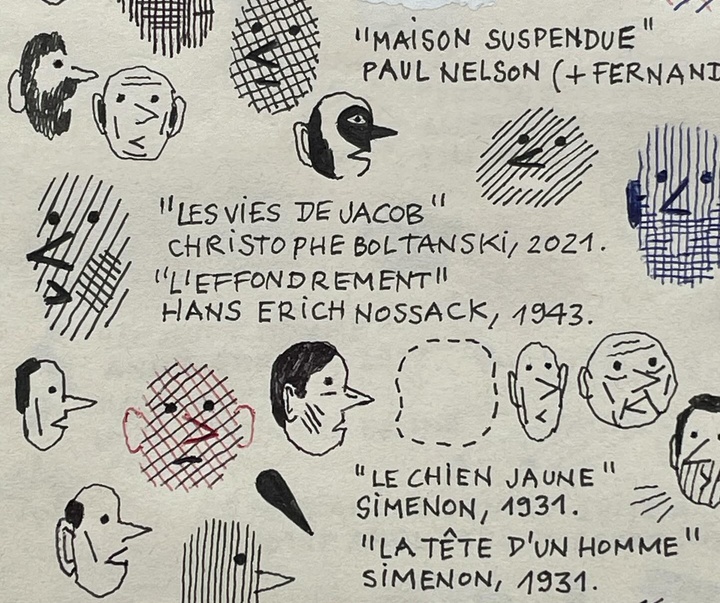 "MAISON SUSPENDUE"
PAUL NELSON (+ FERNAND
"LES VIES DE JACOB"
CHRISTOPHE BOLTANSKI, 2021.
"L'EFFONDREMENT"
HANS ERICH NOSSACK, 1943.
"LE CHIEN JAUNE"
SIMENON, 1931.
"LA TÊTE D'UN HOMME"
SIMENON, 1931.